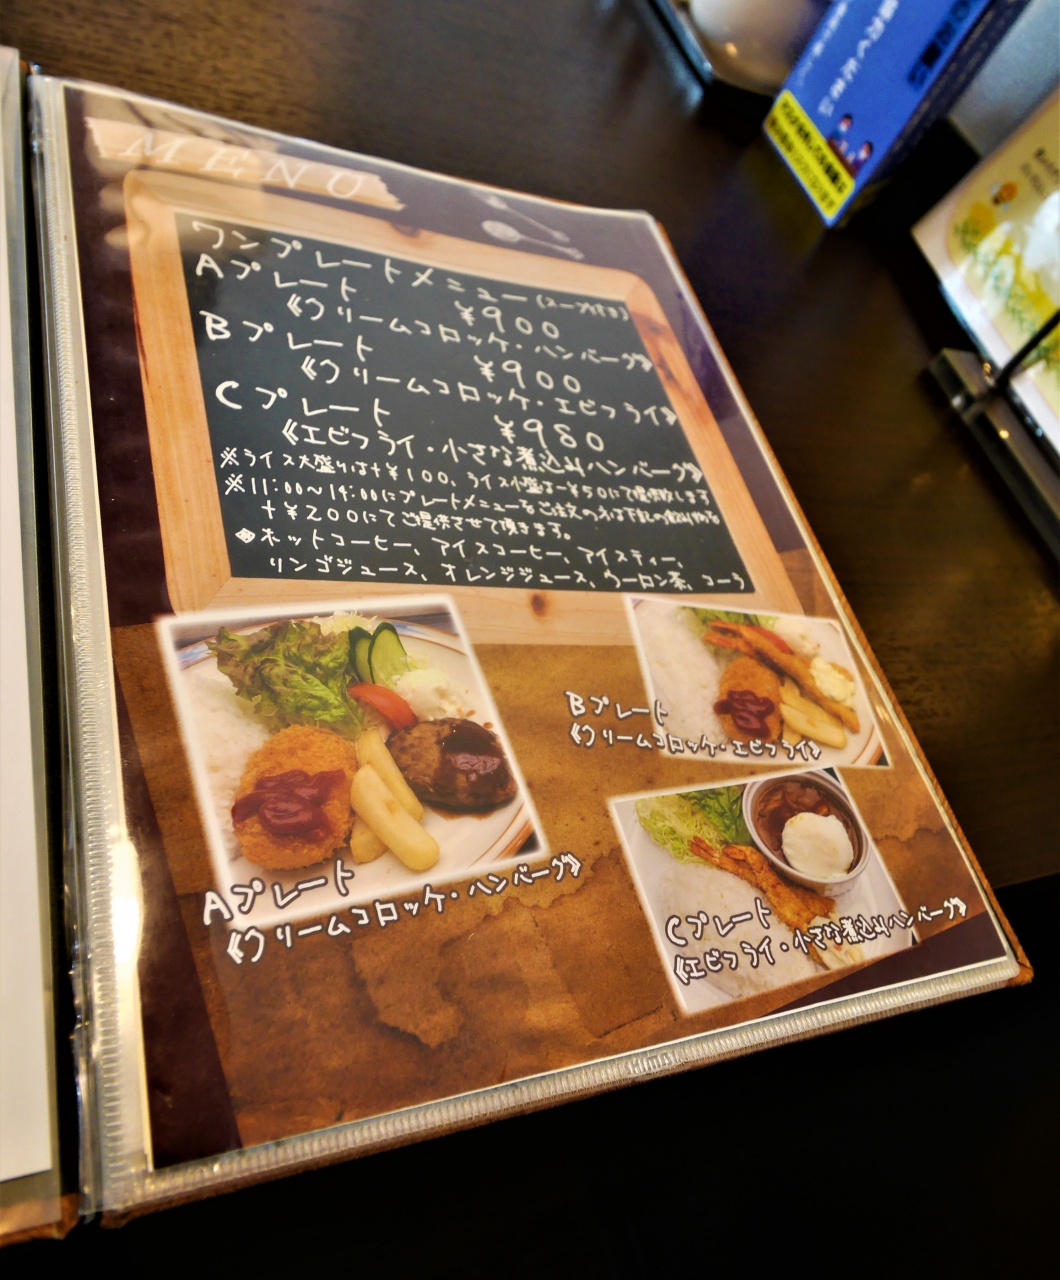 MENU
ワンプレートメニュー(スープ付き)
Aプレート ¥900
《クリームコロッケ・ハンバーグ》
Bプレート ¥900
《クリームコロッケ・エビフライ》
Cプレート ¥980
《エビフライ・小さな煮込みハンバーグ》
※ライス大盛りは+¥100、ライス小盛は-¥50にて提供致します
※11:00～14:00にプレートメニューをご注文の方は下記の飲み物を
+¥200にてご提供させて頂きます。
◆ホットコーヒー、アイスコーヒー、アイスティー、
リンゴジュース、オレンジジュース、ウーロン茶、コーラ
Bプレート
《クリームコロッケ・エビフライ》
Aプレート
《クリームコロッケ・ハンバーグ》
Cプレート
《エビフライ・小さな煮込みハンバーグ》